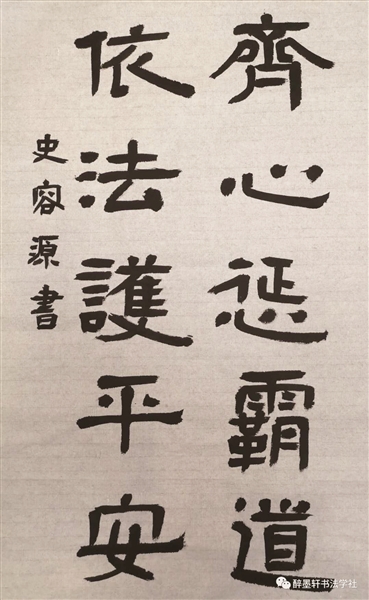 齊心惩霸道
依法護平安
史容源書
醉墨轩书法学社